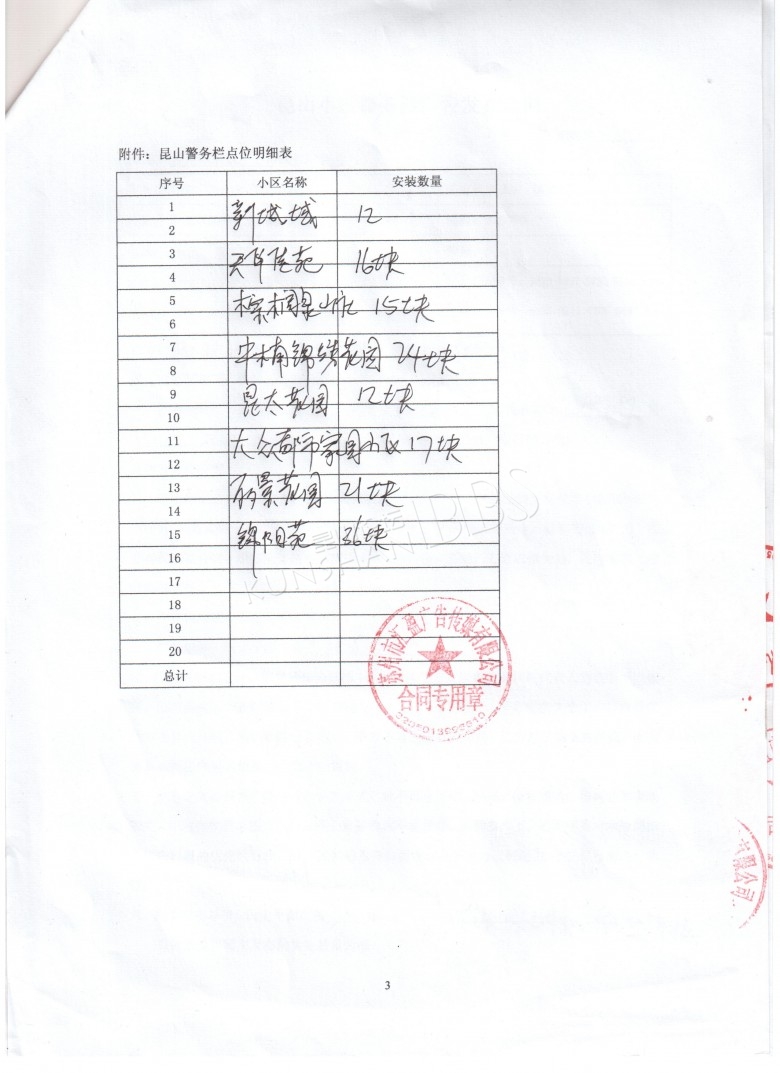 附件：昆山警务栏点位明细表
序号 小区名称 安装数量
1
新城域 12
2
3
天华佳苑 16块
4
5
棕榈昆山 15块
6
7
中楠锦绣花园 24块
8
9
昆太花园 12块
10
11
大众都市家园小区 17块
12
13
丽景花园 21块
14
15
锦阳苑 36块
16
17
18
19
20
总计
KUNSHAN BBS
苏州市汇盈广告传媒有限公司
合同专用章
限公司
3